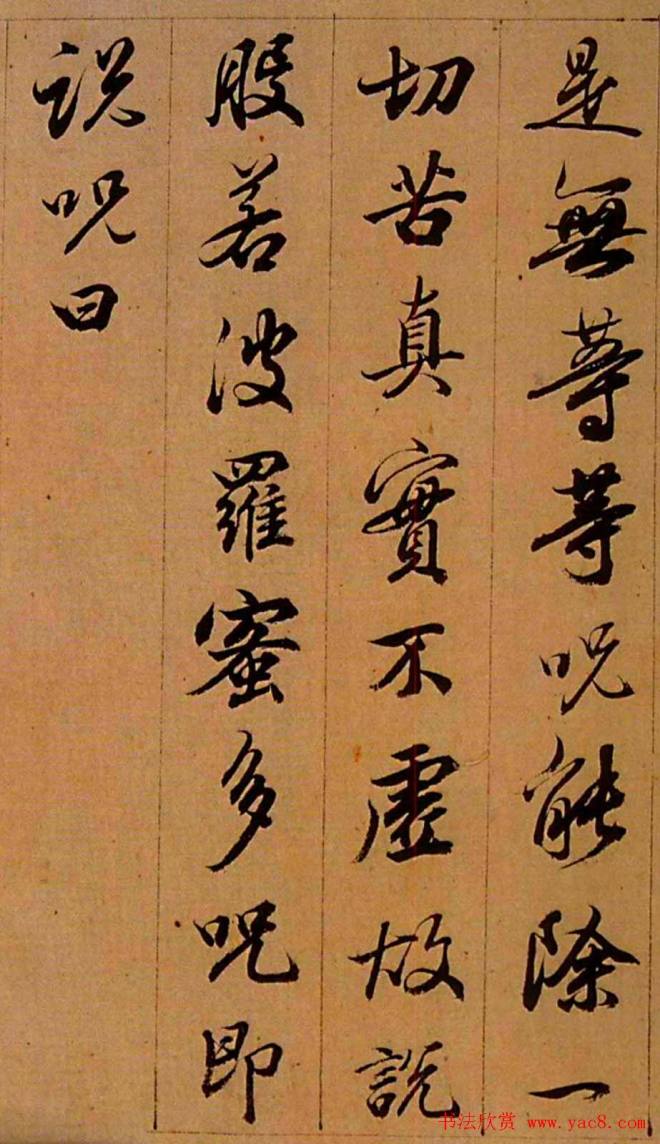 是無等等呪能除一
切苦真實不虛故說
般若波羅蜜多呪即
說呪曰
书法欣赏 www.yac8.com